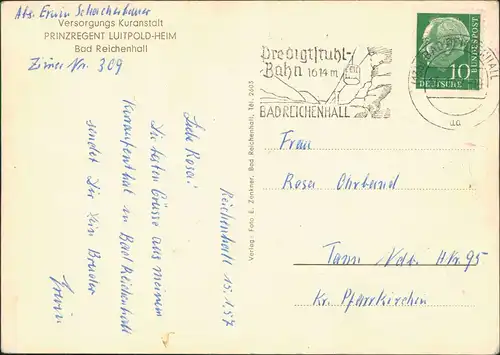 Abs. Erwin Scheichenbauer
Versorgungs Kuranstalt
PRINZREGENT LUITPOLD-HEIM
Bad Reichenhall
Zimer Nr. 309
Reichenhall 15.1.57
Liebe Rosa!
Die besten Grüsse aus meinem
Kuraufenthalt in Bad Reichenhall
sendet Dir Dein Bruder
Erwin
Verlag: Foto E. Zentner, Bad Reichenhall, Tel. 2603
Predigtstuhl-
Bahn 1614 m
BAD REICHENHALL
10
DEUTSCHE
BUNDESPOST
Frau
Rosa Ohrband
Tann Ndb. H.Nr. 95
Kr. Pfarrkirchen